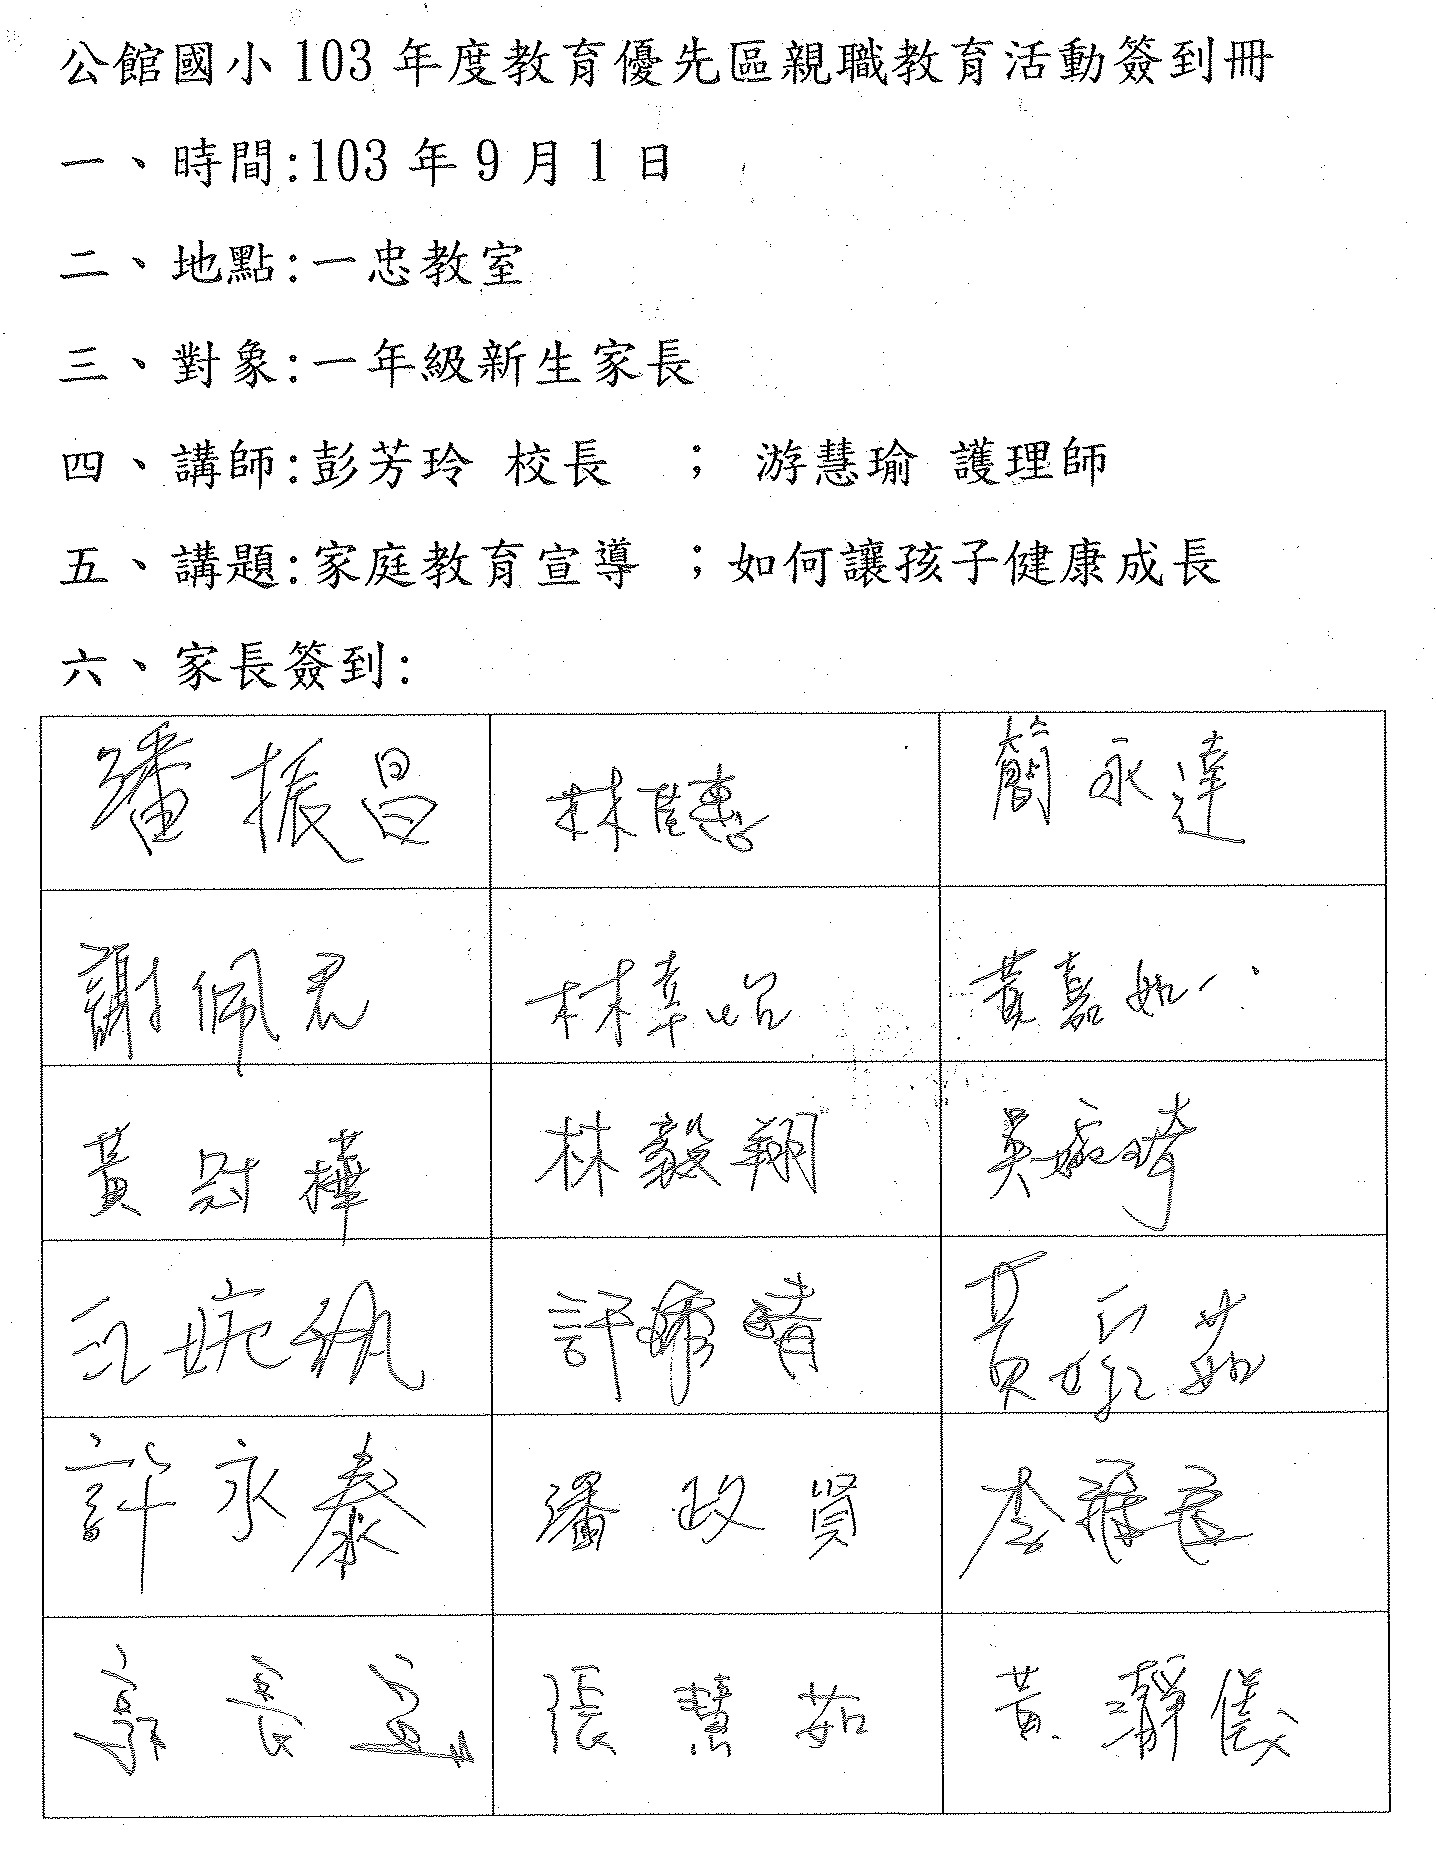 公館國小103年度教育優先區親職教育活動簽到冊
一、時間:103年9月1日
二、地點:一忠教室
三、對象:一年級新生家長
四、講師:彭芳玲 校長 ; 游慧瑜 護理師
五、講題:家庭教育宣導 ;如何讓孩子健康成長
六、家長簽到:
潘振昌 林 惠 簡永達
謝佩君 林韋岄 黃嘉如
黃冠樺 林毅翔 吳婉琦
王婉 許 晴 黃 茹
許永泰 潘政賢 李雅
長 張慧茹 黃瀞儀